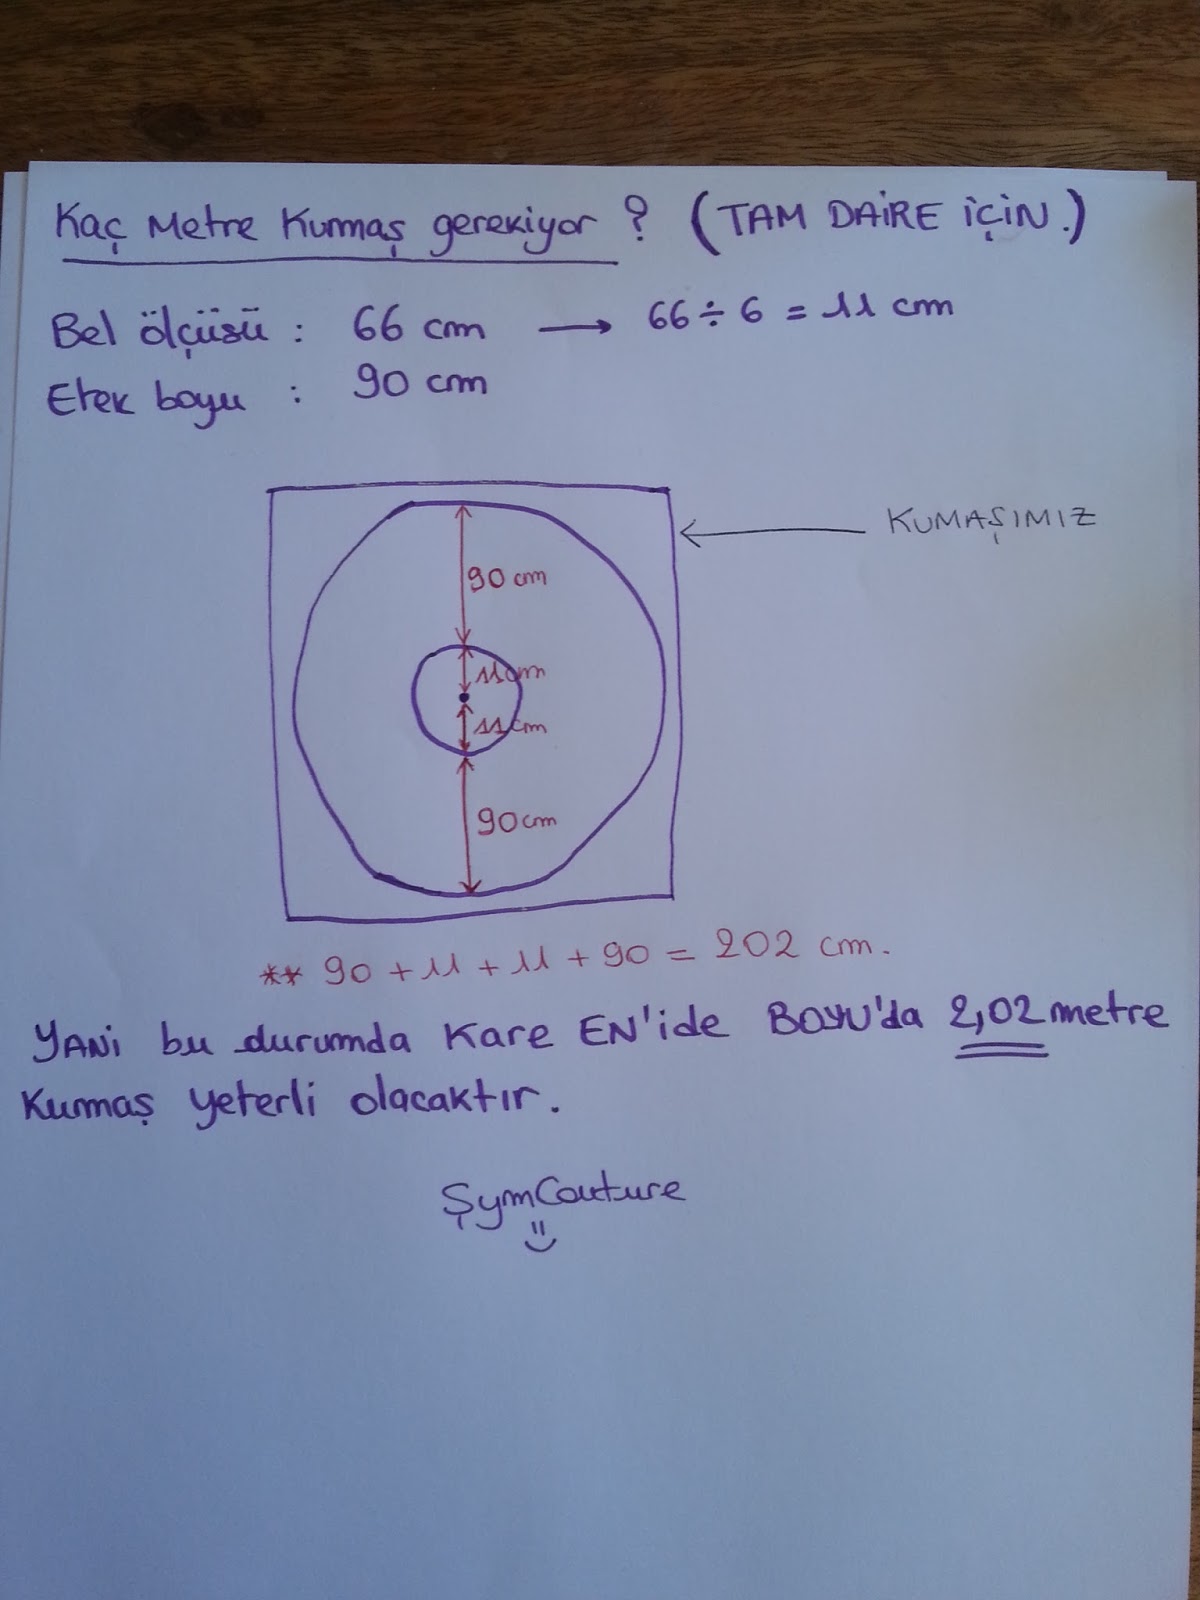 Kaç Metre Kumaş gerekiyor ? (TAM DAİRE İÇİN.)
Bel ölçüsü : 66 cm → 66 ÷ 6 = 11 cm
Etek boyu : 90 cm
KUMAŞIMIZ
90 cm
11cm
11cm
90cm
** 90 + 11 + 11 + 90 = 202 cm.
YANİ bu durumda Kare EN'ide BOYU'da 2,02 metre
Kumaş yeterli olacaktır.
ŞymCouture